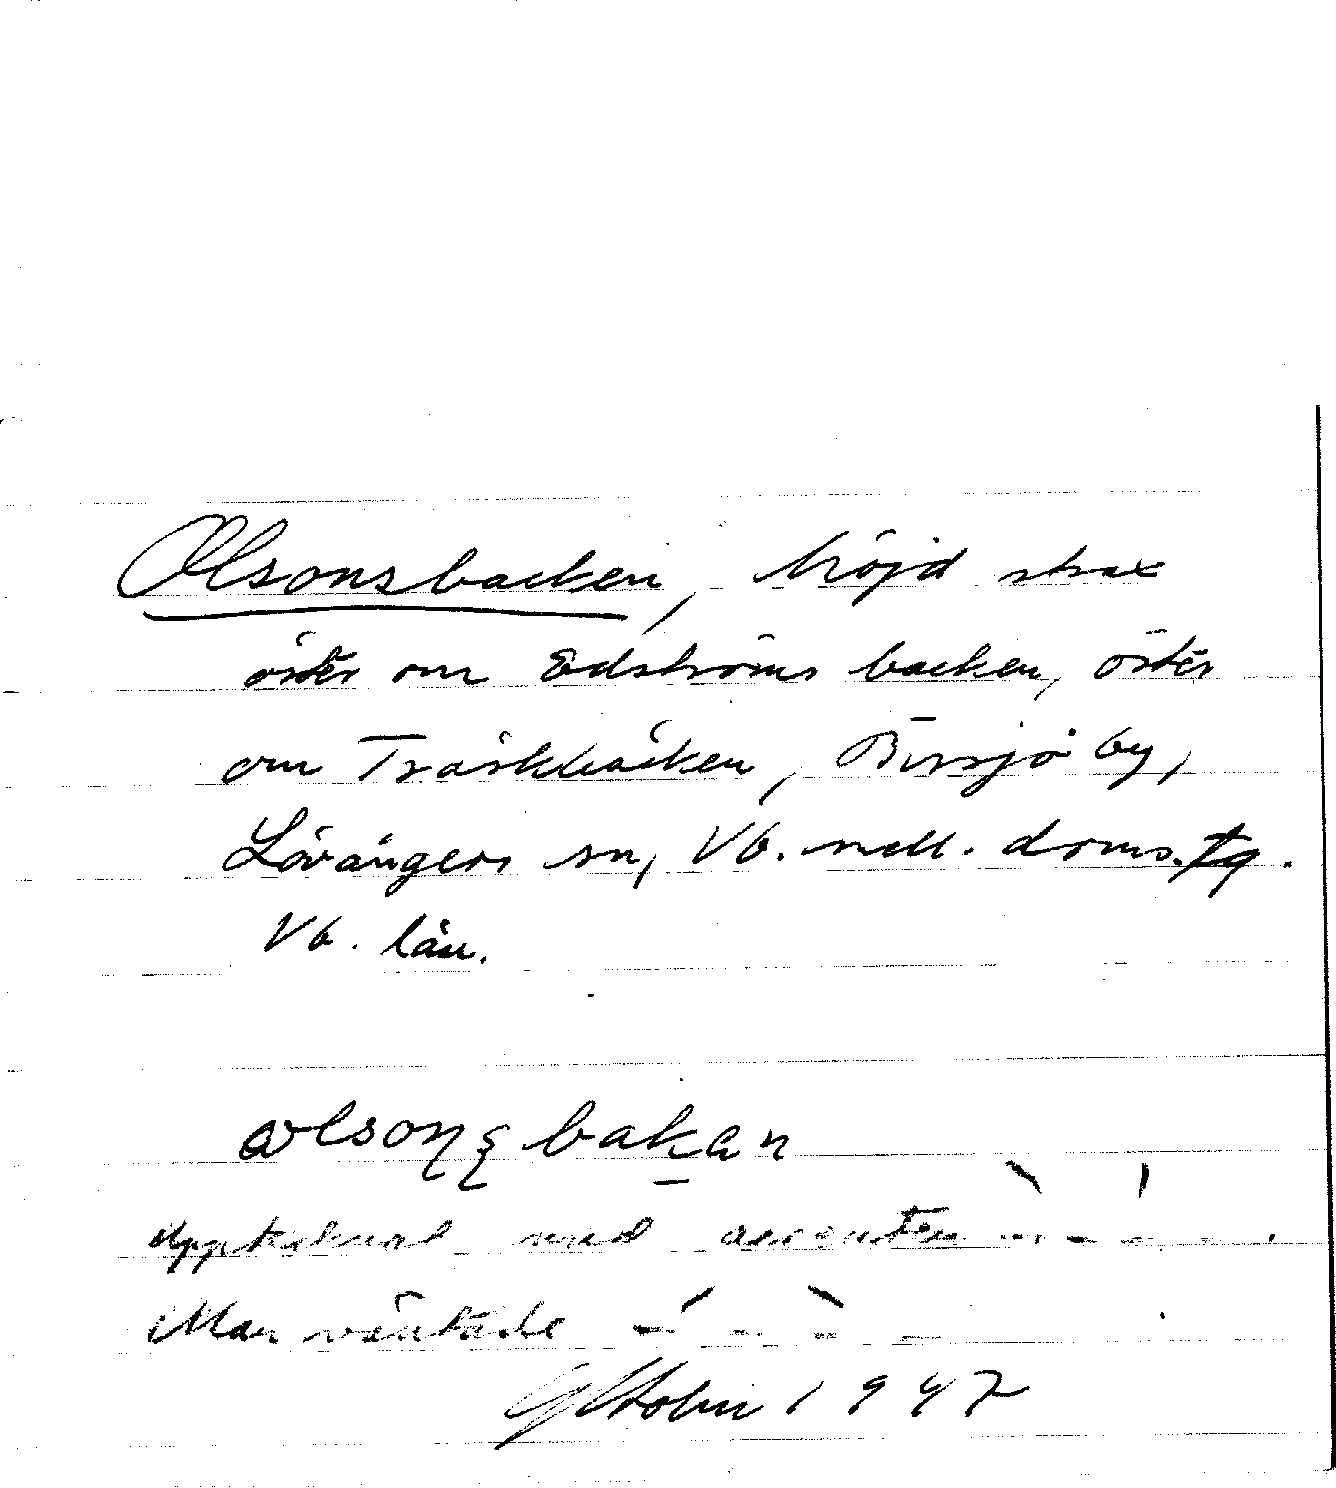 Olsonsbacken, höjd strax
öster om Edströms backen, öster
om Träskbäcken, Bissjö by,
Lövångers sn, Vb. mell. doms. tg.
Vb. län.
olsonsbakan
Upptecknat med accenten
Man väntade
1947